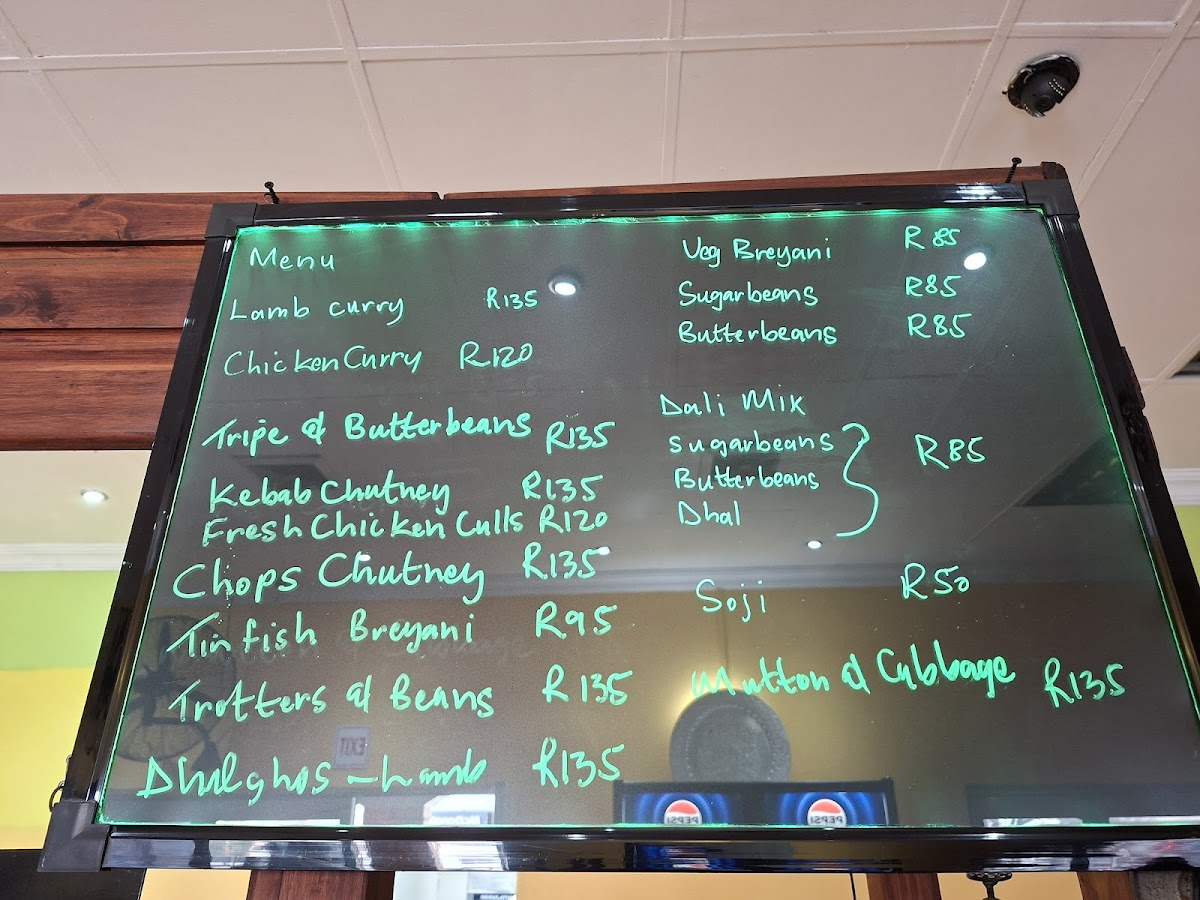 Menu
Lamb curry R135
Chicken Curry R120
Tripe & Butterbeans R135
Kebab Chutney R135
Fresh Chicken Culls R120
Chops Chutney R135
Tinfish Breyani R95
Trotters & Beans R135
Dhalghos - Lamb R135
Veg Breyani R85
Sugarbeans R85
Butterbeans R85
Dali Mix
Sugarbeans
Butterbeans R85
Dhal
Soji R50
Mutton & Cabbage R135
EXIT
PEPSI
PEPSI